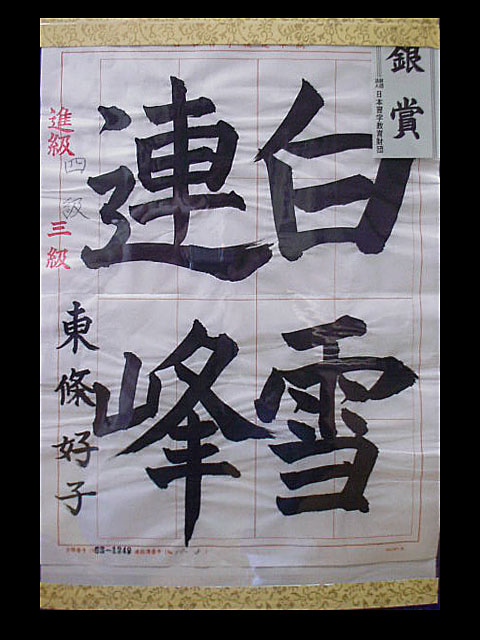 白雪
連峰
進級
四級
三級
東條好子
銀賞
日本習字教育財団
63-1249